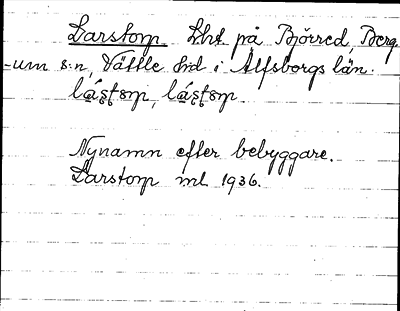 Larstorp. Lht på Björred, Berg-
-um s:n, Vättle hd i Älfsborgs län.
Nynamn efter bebyggare.
Larstorp ml. 1936.